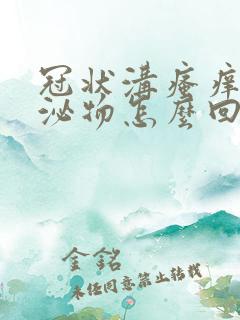 冠状溝瘙痒
泌物怎麼回
金銘
未经同意禁止转载